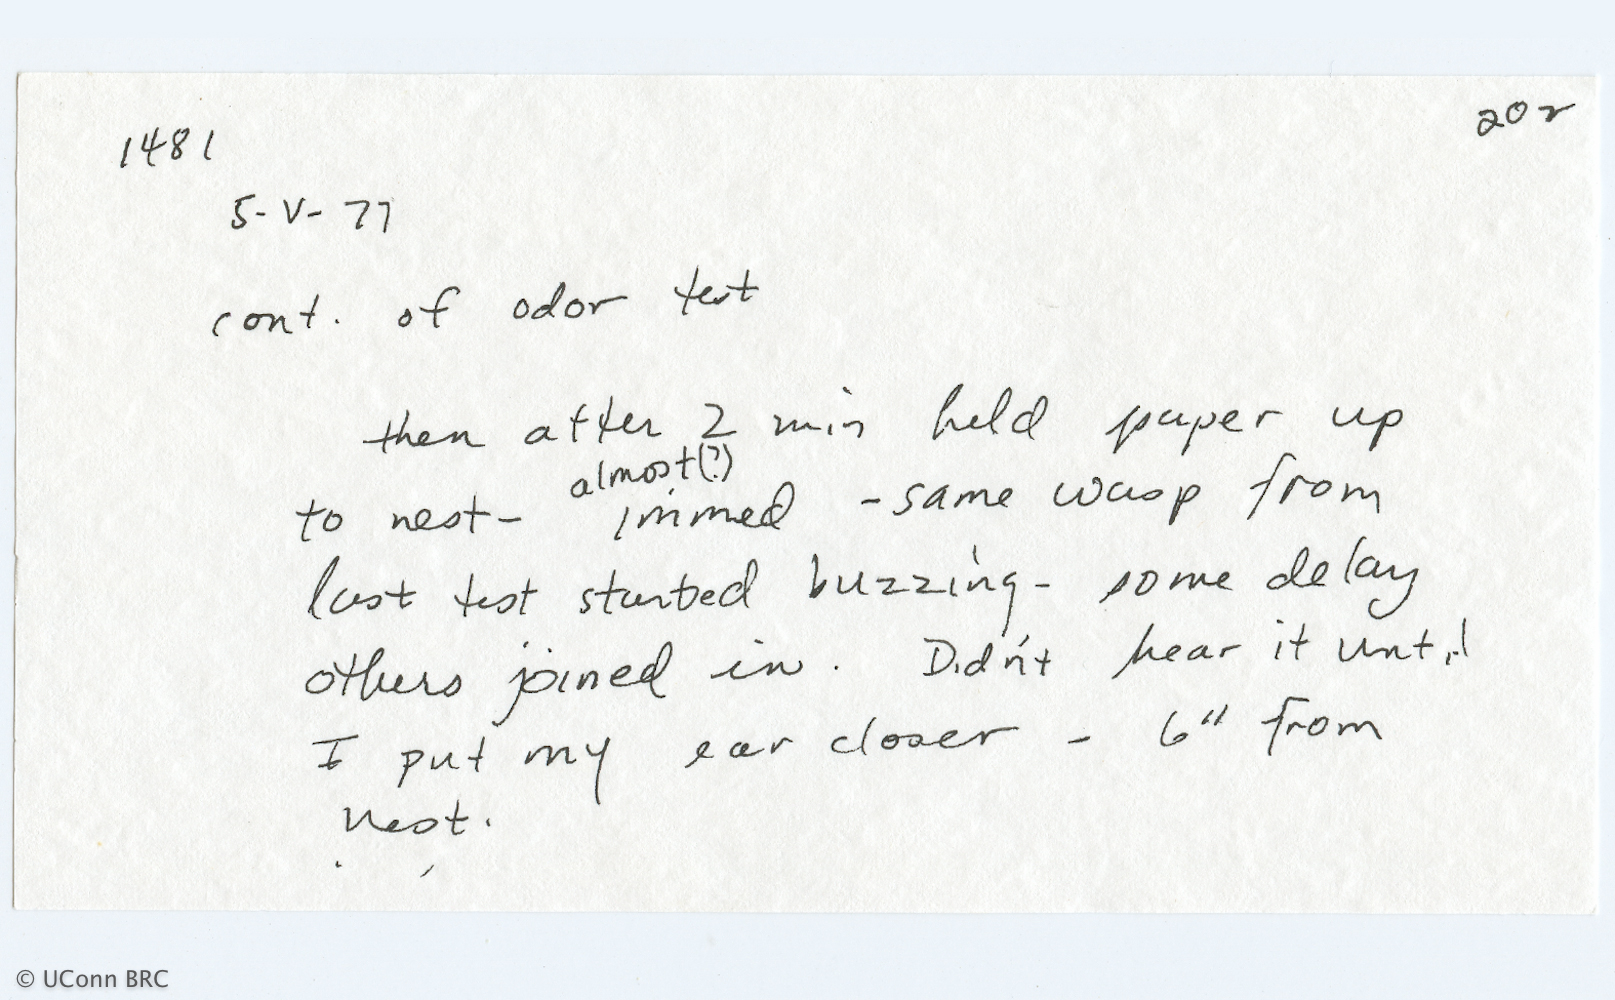 1481
202
5-V-77
cont. of odor test
then after 2 min held paper up
almost(?)
to nest- immed - same wasp from
last test started buzzing - some delay
others joined in. Didn't hear it until
I put my ear closer - 6" from
nest.
© UConn BRC